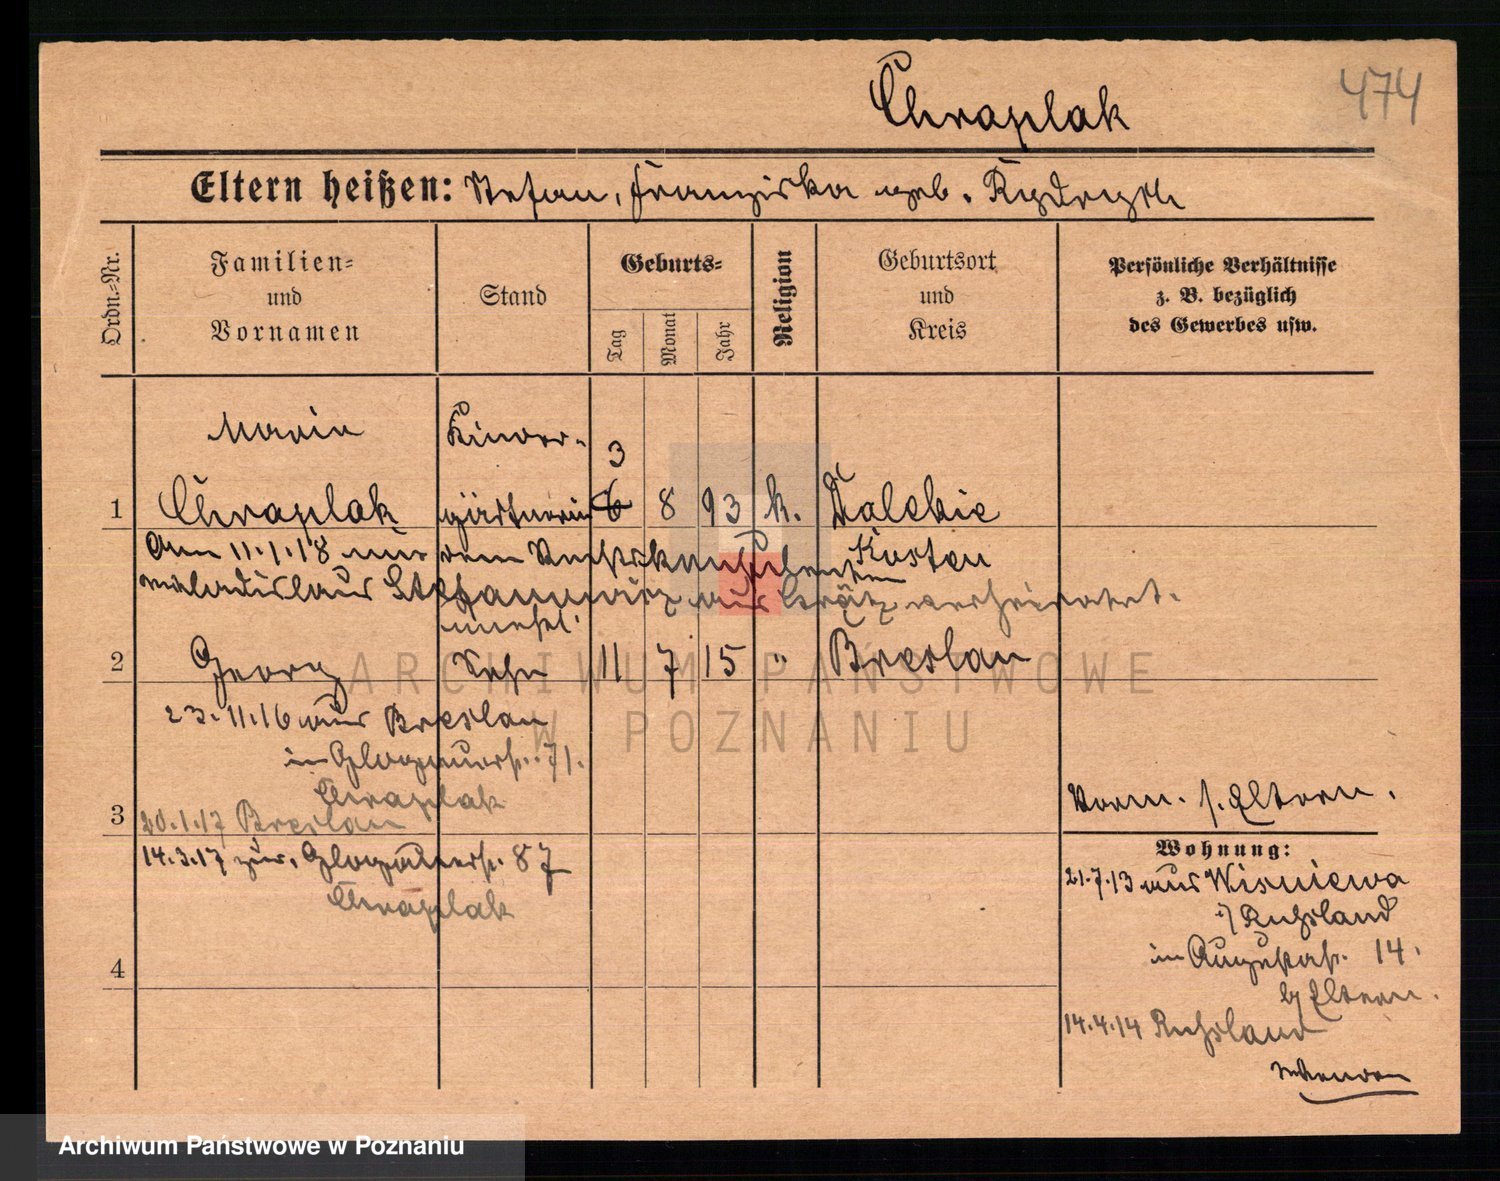 Chraplak
474
Eltern heißen: Stefan, Franziska geb.
Ordn.-Nr.
Familien-
und
Vornamen
Stand
Geburts-
Tag
Monat
Jahr
Religion
Geburtsort
und
Kreis
Persönliche Verhältnisse
z. B. bezüglich
des Gewerbes usw.
Maria Kinder-
3
1 Chraplak gärtnerin 6 8 93 k. Dalekie
Am 11.1.18 mit dem Kosten
Wladislaus aus Grätz verheiratet.
unehl.
2 Georg Sohn 11 7 15 " Breslau
23.11.16 aus Breslau
in Glogauerstr. 71.
Chraplak
3 20.1.17 Breslau
14.3.17 zur. Glogauerstr. 87
Chraplak
4
Vorm. s. Eltern.
Wohnung:
21.7.13 aus Wisniewa
i/ Russland
in Augustastr. 14.
b/ Eltern.
14.4.14 Russland
ARCHIWUM PAŃSTWOWE
W POZNANIU
Archiwum Państwowe w Poznaniu